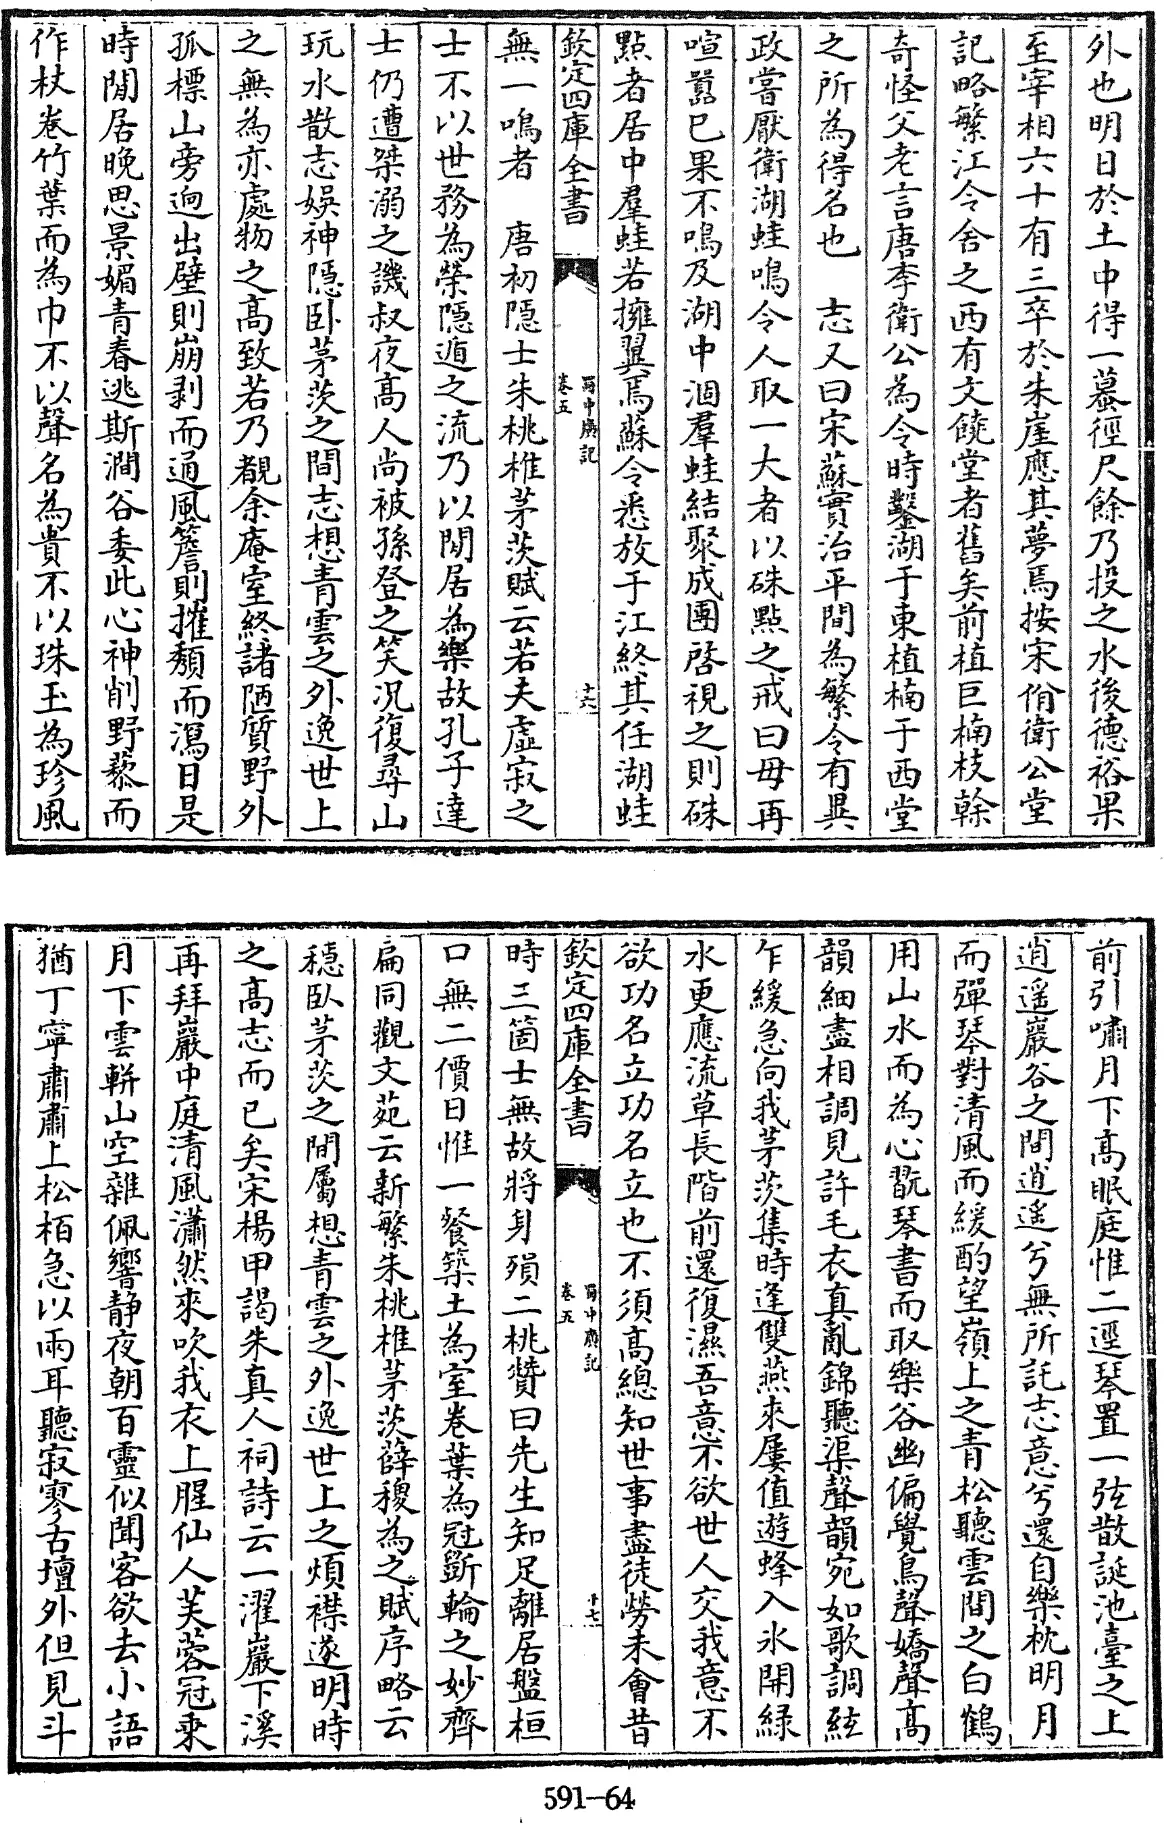 外也明日於土中得一蟇徑尺餘乃投之水後德裕果
至宰相六十有三卒於朱崖應其夢焉按宋俏衛公堂
記略繁江令舍之西有文饒堂者舊矣前植巨楠枝幹
奇怪父老言唐李衛公為令時鑿湖于東植楠于西堂
之所為得名也　志又曰宋蘇實治平間為繁令有異
政嘗厭衛湖蛙鳴令人取一大者以硃點之戒曰毋再
喧囂已果不鳴及湖中涸羣蛙結聚成團啓視之則硃
點者居中羣蛙若擁翼焉蘇令悉放于江終其任湖蛙
欽定四庫全書
蜀中廣記
卷五
十六
無一鳴者　唐初隱士朱桃椎茅茨賦云若夫虛寂之
士不以世務為榮隱遁之流乃以閒居為樂故孔子達
士仍遭桀溺之譏叔夜高人尚被孫登之笑况復尋山
玩水散志娛神隱卧茅茨之間志想青雲之外逸世上
之無為亦處物之高致若乃覩余庵室終諸陋質野外
孤標山旁逈出壁則崩剥而通風簷則摧頽而瀉日是
時閒居晩思景媚青春逃斯澗谷委此心神削野藜而
作杖卷竹葉而為巾不以聲名為貴不以珠玉為珍風
前引嘯月下高眠庭惟二逕琴置一弦散誕池臺之上
逍遥巖谷之間逍遥兮無所託志意兮還自樂枕明月
而彈琴對清風而緩酌望嶺上之青松聽雲間之白鶴
用山水而為心翫琴書而取樂谷幽偏覺鳥聲嬌聲高
韻細盡相調見許毛衣真亂錦聽渠聲韻宛如歌調絃
乍緩急向我茅茨集時逢雙燕來屢值遊蜂入氷開緑
水更應流草長階前還復濕吾意不欲世人交我意不
欲功名立功名立也不須高總知世事盡徒勞未會昔
欽定四庫全書
蜀中廣記
卷五
十七
時三箇士無故將身殞二桃贊曰先生知足離居盤桓
口無二價日惟一餐築土為室卷葉為冠斲輪之妙齊
扁同觀文苑云新繁朱桃椎茅茨薛稷為之賦序略云
穏臥茅茨之間屬想青雲之外逸世上之煩襟遂明時
之高志而已矣宋楊甲謁朱真人祠詩云一濯巖下溪
再拜巖中庭清風瀟然來吹我衣上腥仙人芙蓉冠乘
月下雲軿山空雜佩響静夜朝百靈似聞客欲去小語
猶丁寧肅肅上松栢急以兩耳聽寂寥古壇外但見斗
591-64